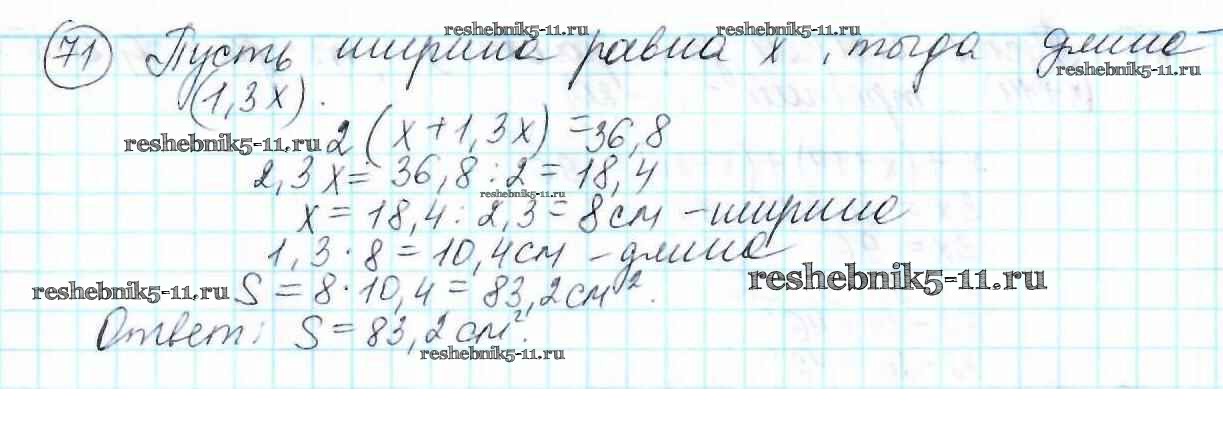 reshebnik5-11.ru reshebnik5-11.ru
71 Пусть ширина равна x, тогда длина
reshebnik5-11.ru
(1,3x).
reshebnik5-11.ru 2(x+1,3x)=36,8
2,3x=36,8:2=18,4
reshebnik5-11.ru
x=18,4:2,3=8см –ширина
1,3·8=10,4см –длина
reshebnik5-11.ru
reshebnik5-11.ru S=8·10,4=83,2см².
Ответ: S=83,2см².
reshebnik5-11.ru